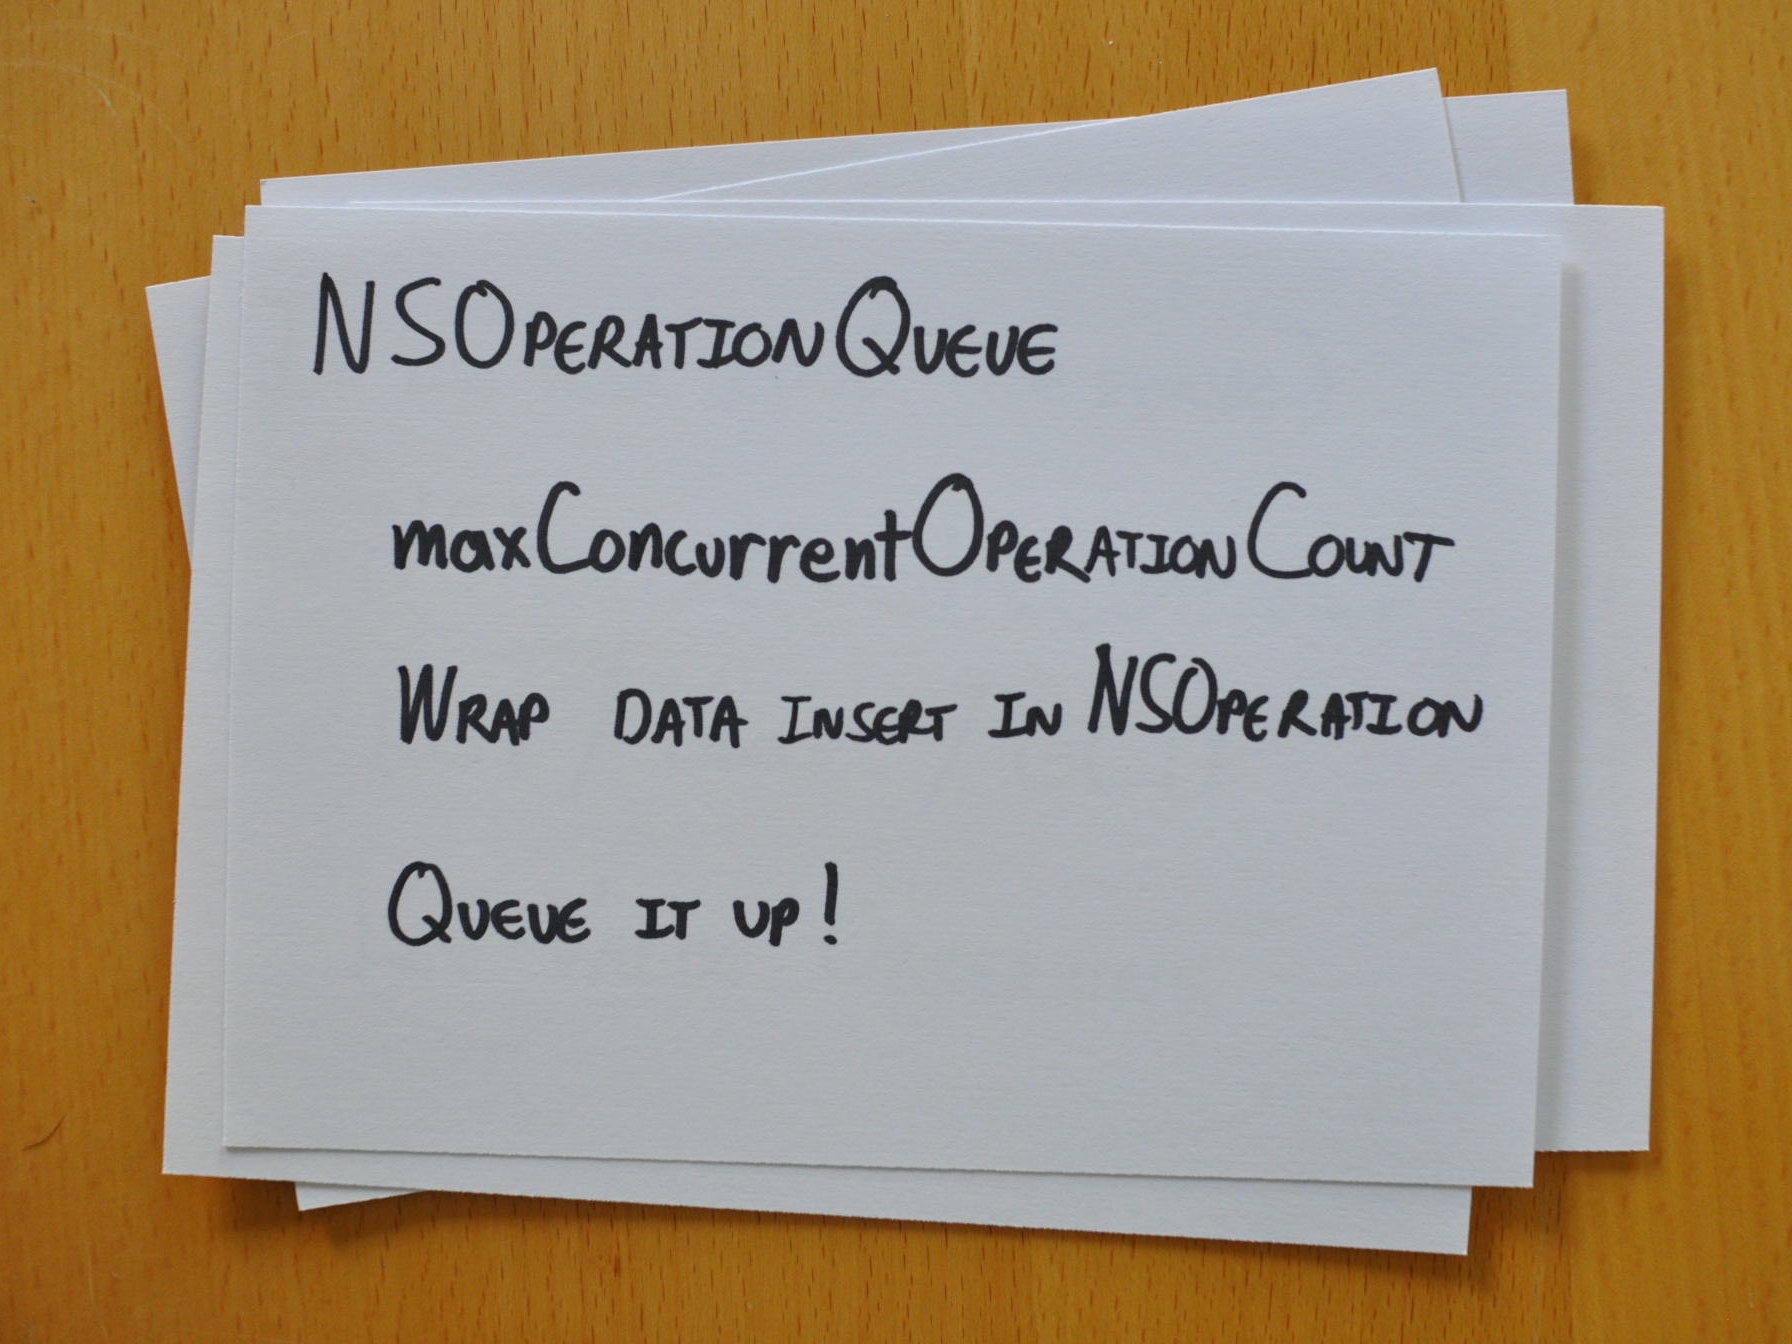 NSOperationQueue
maxConcurrentOperationCount
Wrap data insert in NSOperation
Queue it up!